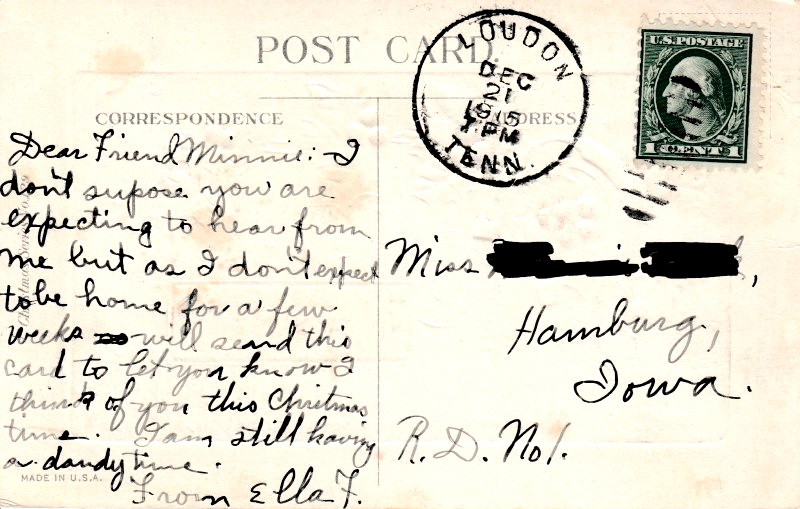 POST CARD
LOUDON
DEC
21
1915
7 PM
TENN.
U.S. POSTAGE
1 CENTS 1
CORRESPONDENCE
ADDRESS
Dear Friend Minnie:- I
don't supose you are
expecting to hear from
me but as I don't expect
to be home for a few
weeks will send this
card to let you know I
think of you this Christmas
time. I am still having
a dandy time.
From Ella F.
MADE IN U.S.A.
Miss
Hamburg,
Iowa.
R.D. No 1.